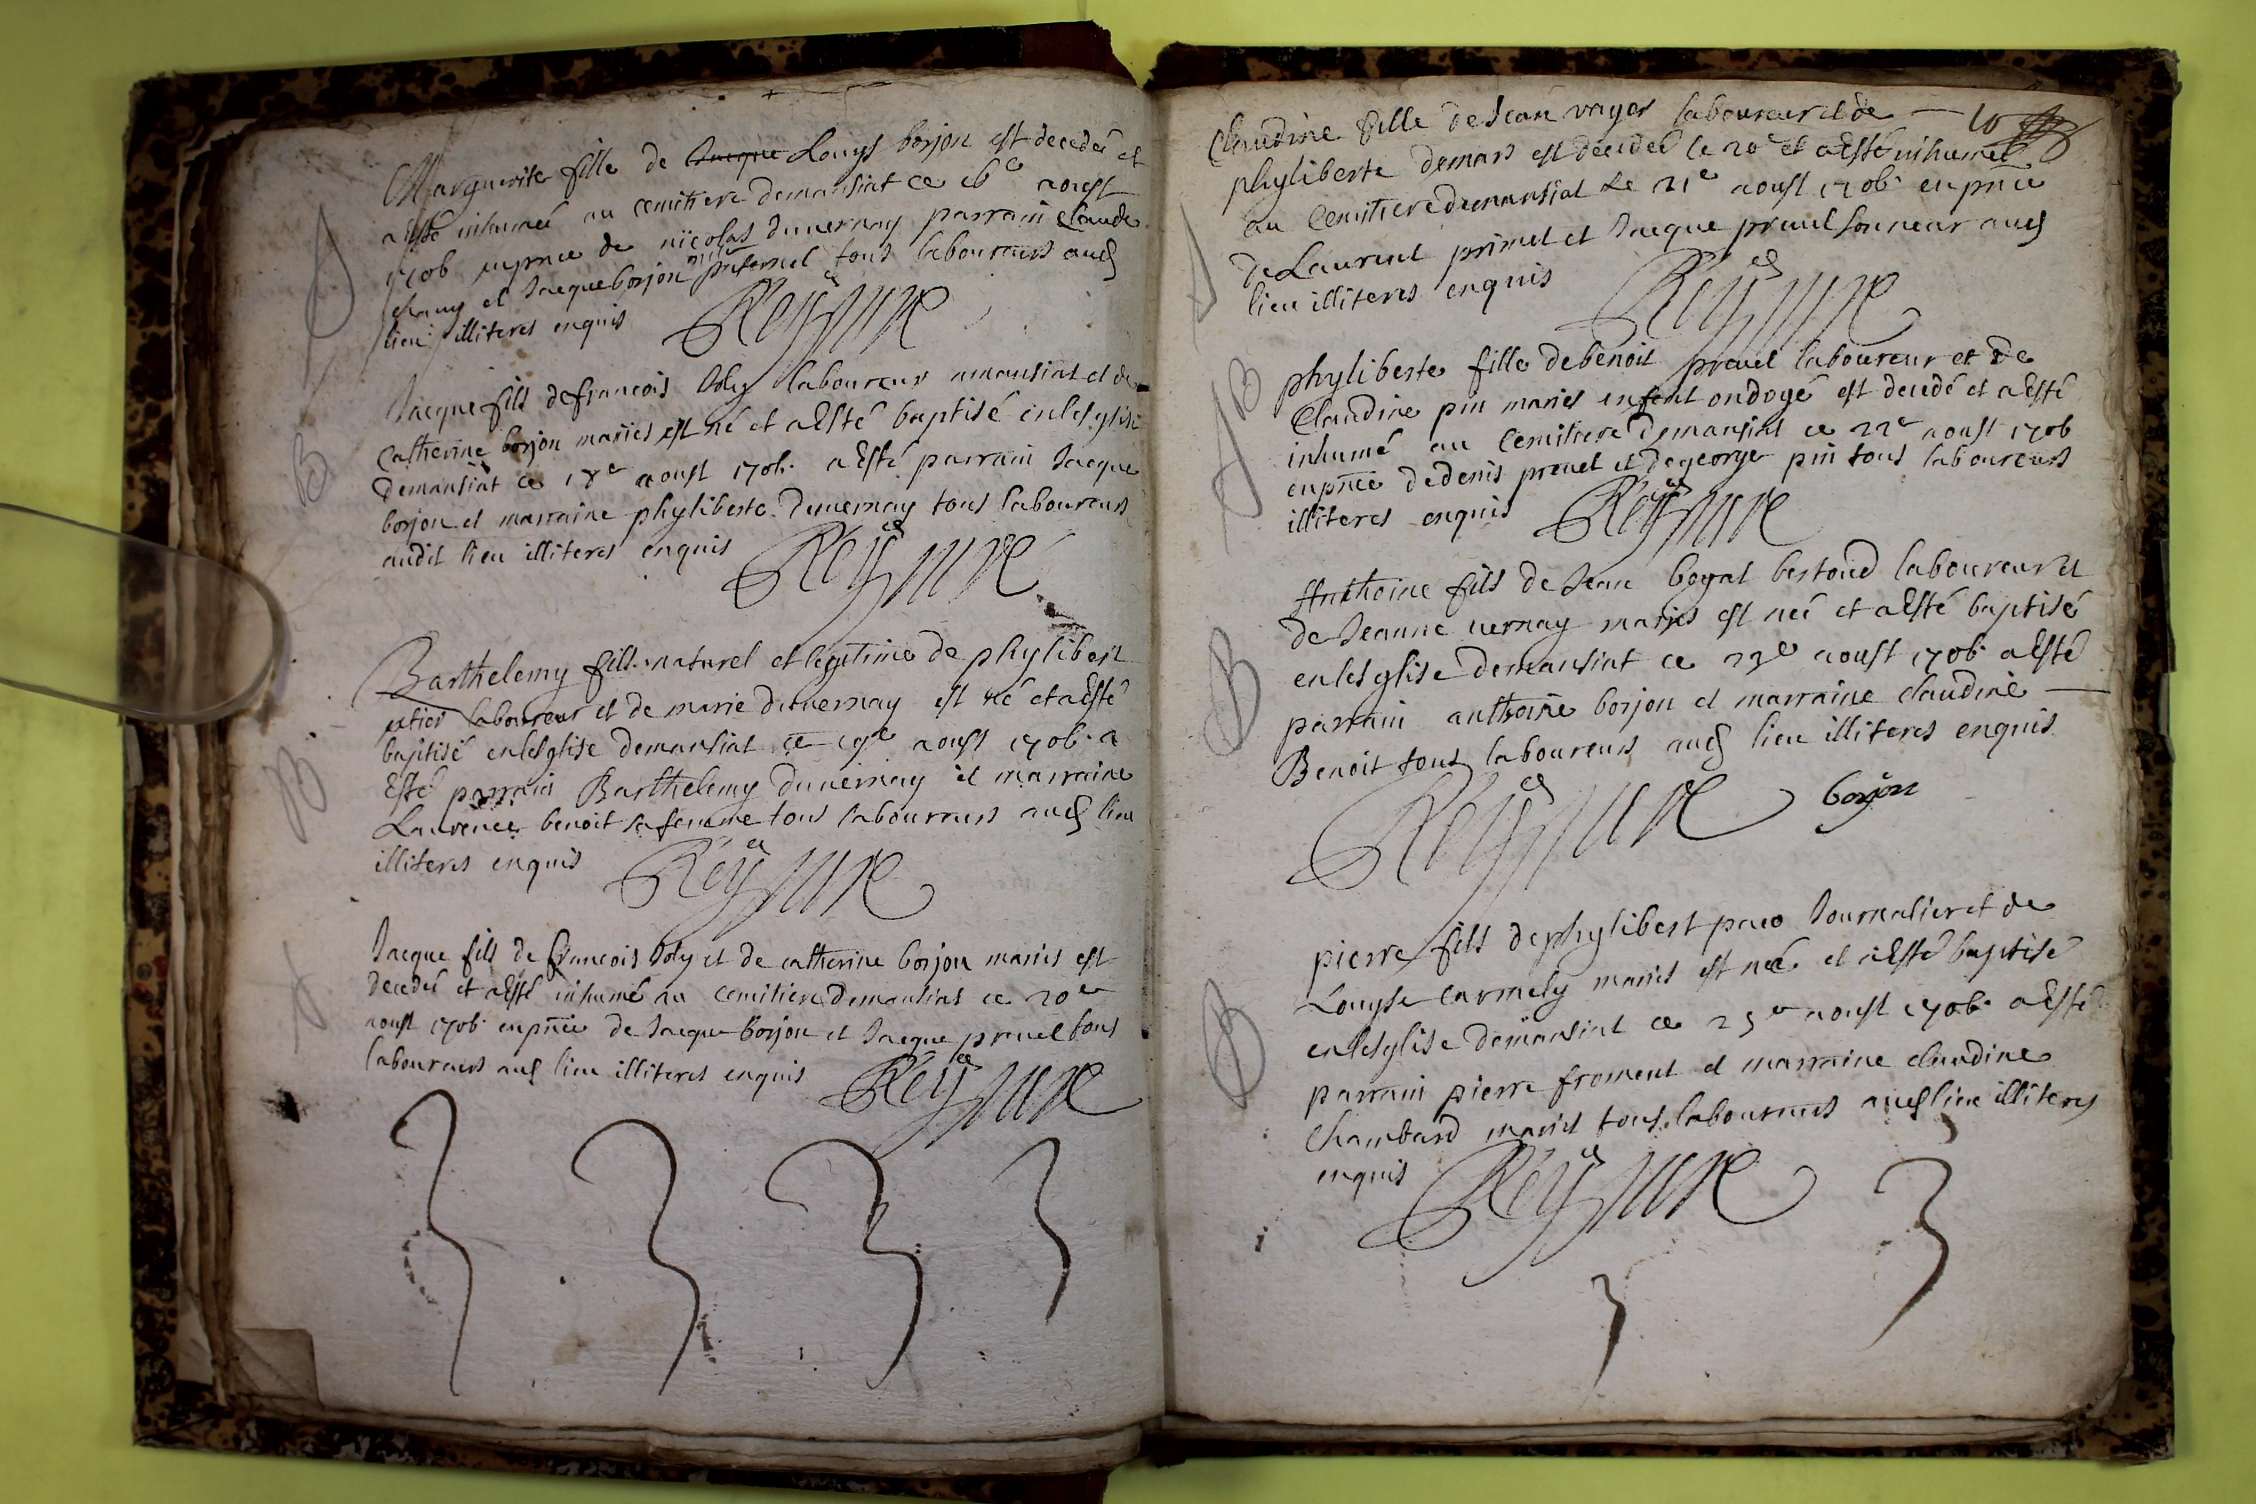 Marguerite fille de Jacque Louys borjon est decedeé et
a esté inhumeé au cemitiere demansiat ce 16e aoust
1706 enpnce de nicolas duvernay parrain claude
et Jacque borjon tous laboureurs aud
lieu illiteres enquis Reyssure
Jacque fils de francois Joly laboureur amansiat et de
Catherine borjon mariés est né et a Esté baptisé enlesglise
demansiat ce 18e aoust 1706. a Esté parrain Jacque
borjon et marraine phyliberte duvernay tous laboureurs
audit lieu illiteres enquis Reyssure
Barthelemy fils naturel et legitime de phylibert
laboureur et de marie duvernay est né et a Esté
baptisé enlesglise demansiat ce 19e aoust 1706. a
Esté parrain Barthelemy duvernay et marraine
Laurence benoit sa femme tous laboureurs aud lieu
illiteres enquis Reyssure
Jacque fils de francois Joly et de catherine borjon mariés est
decedé et a Esté inhumé au cemitiere demansiat ce 20e
aoust 1706. enpnce de Jacque borjon et Jacque prevel tous
laboureurs aud lieu illiteres enquis Reyssure
Claudine fille de Jean vayer laboureur et de — 10
phyliberte demars est decedeé le 20e et a Esté inhumeé
au Cemitiere demansiat Le 21e aoust 1706. enpnce
de Laurent primet et Jacque prevel sonneur aud
lieu illiteres enquis Reyssure
phyliberte fille de benoit prevel laboureur et de
Claudine pin mariés enfent ondoyé est decedé et a Esté
inhumé au Cemitiere demansiat ce 22e aoust 1706
enpnce de denis prevel et de george pin tous laboureurs
illiteres enquis Reyssure
Anthoine fils de Jean boyat bertoud laboureur et
de Jeanne vernay mariés est neé et a Esté baptisé
enlesglise demansiat ce 23e aoust 1706. a Esté
parrain anthoine borjon et marraine claudine —
Benoit tous laboureurs aud lieu illiteres enquis
Reyssure borjon
pierre fils de phylibert Journalier et de
Louyse Carmely mariés est neé et a Esté baptisé
enlesglise demansiat ce 25e aoust 1706. a Esté
parrain pierre froment et marraine claudine
Chambard mariés tous laboureurs aud lieu illiteres
enquis Reyssure